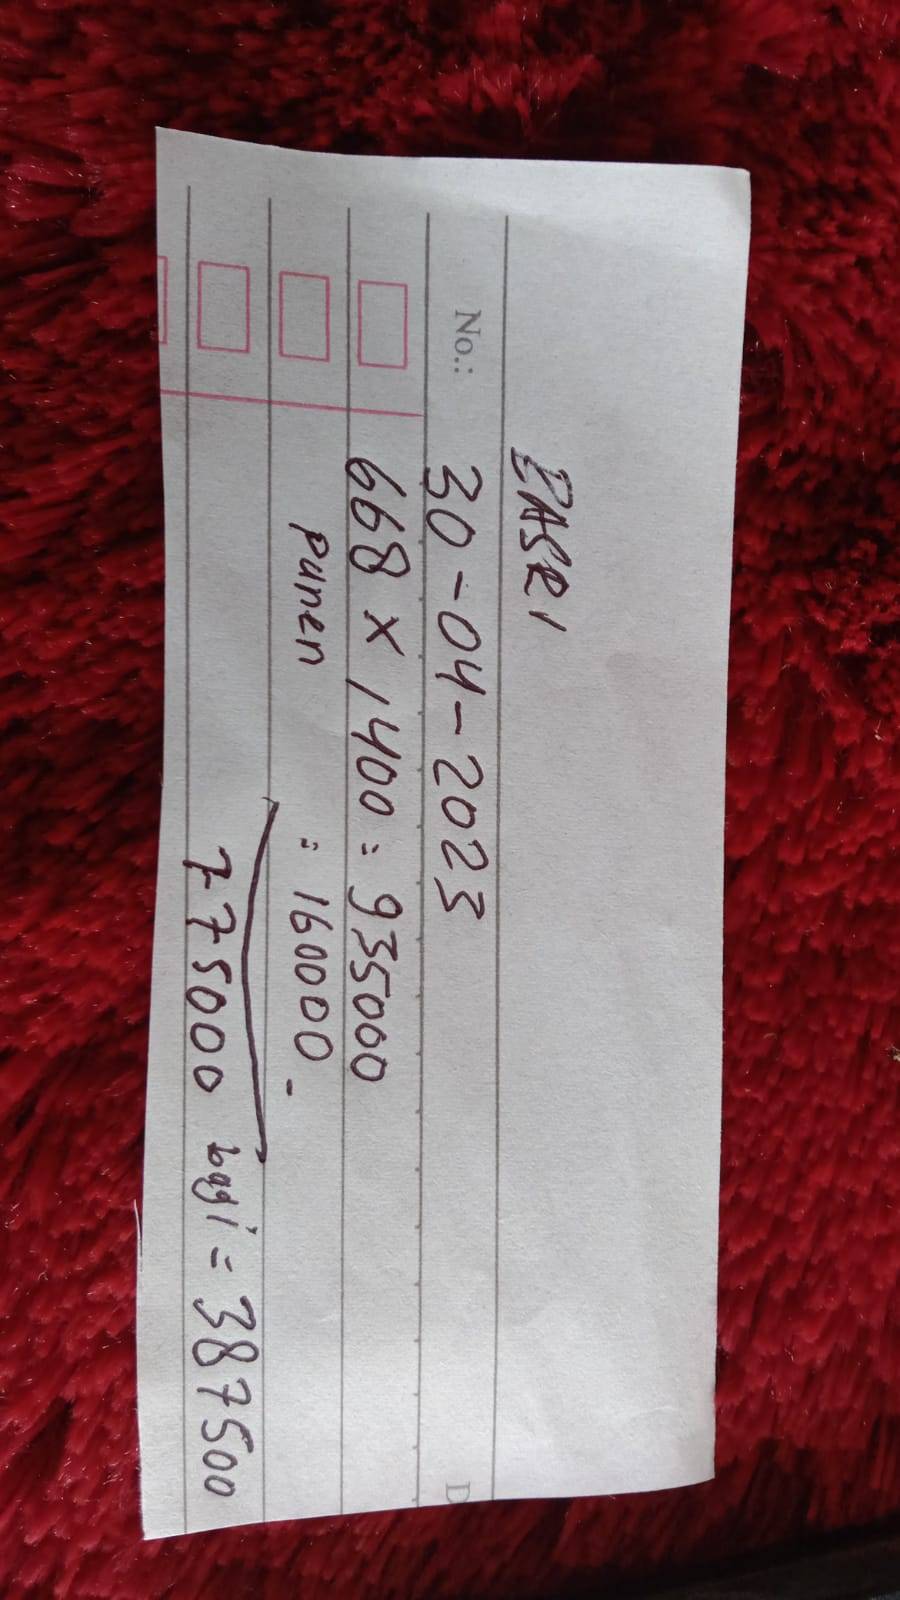 BASRI
No.:
30-04-2023
668 x 1400 = 935000
panen = 160000 -
775000 bagi = 387500
D